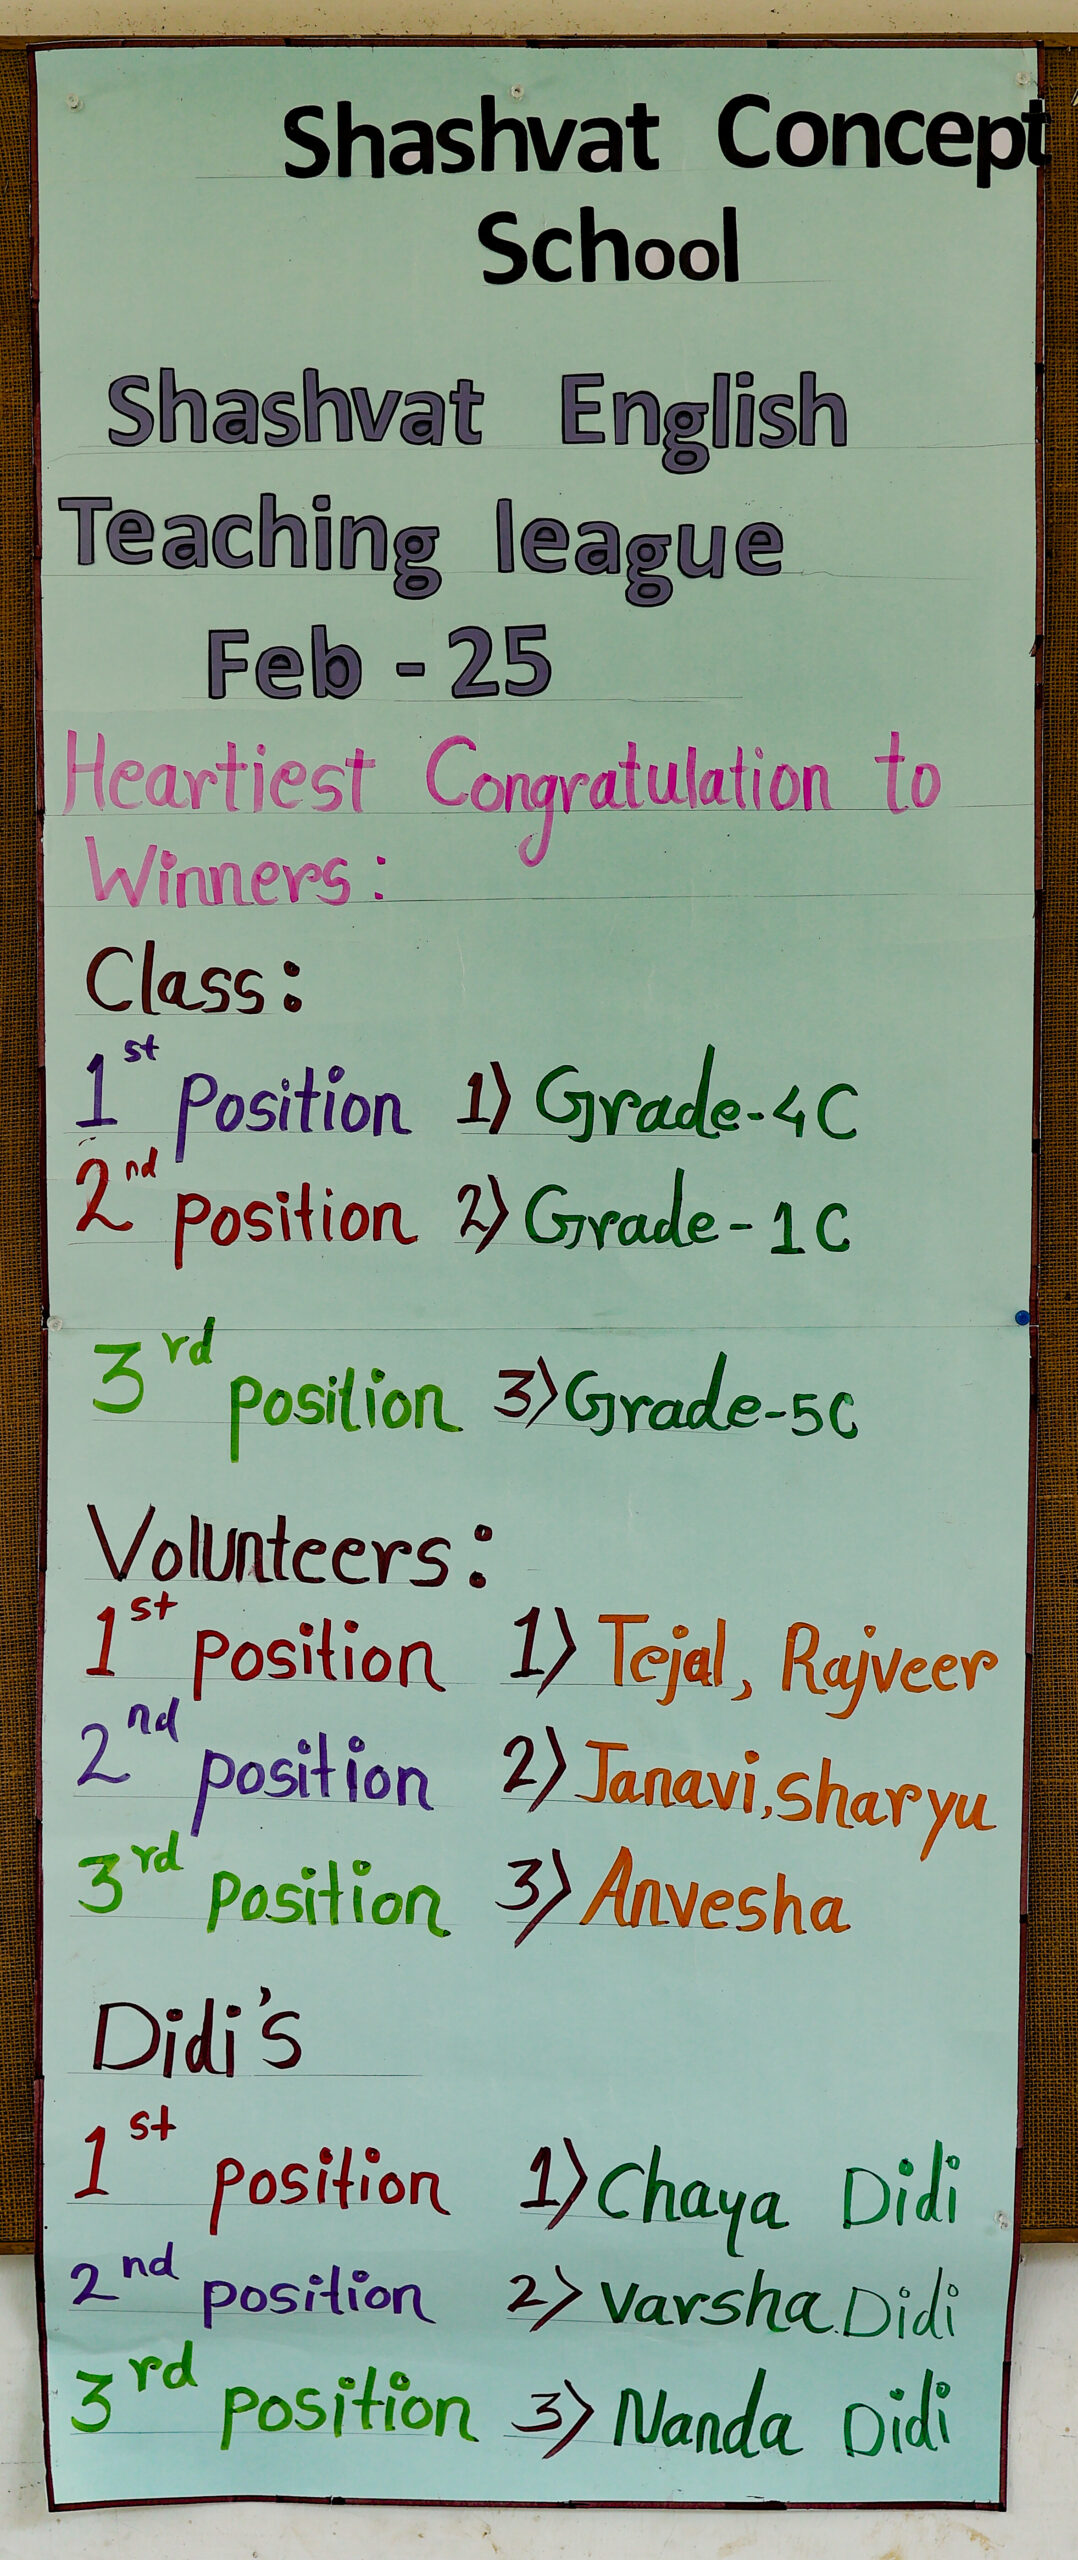 Shashvat Concept
School
Shashvat English
Teaching league
Feb - 25
Heartiest Congratulation to
Winners:
Class:
1st Position 1) Grade-4C
2nd position 2) Grade-1C
3rd position 3) Grade-5C
Volunteers:
1st position 1) Tejal, Rajveer
2nd position 2) Janavi, sharyu
3rd position 3) Anvesha
Didi's
1st position 1) Chaya Didi
2nd position 2) Varsha Didi
3rd position 3) Nanda Didi